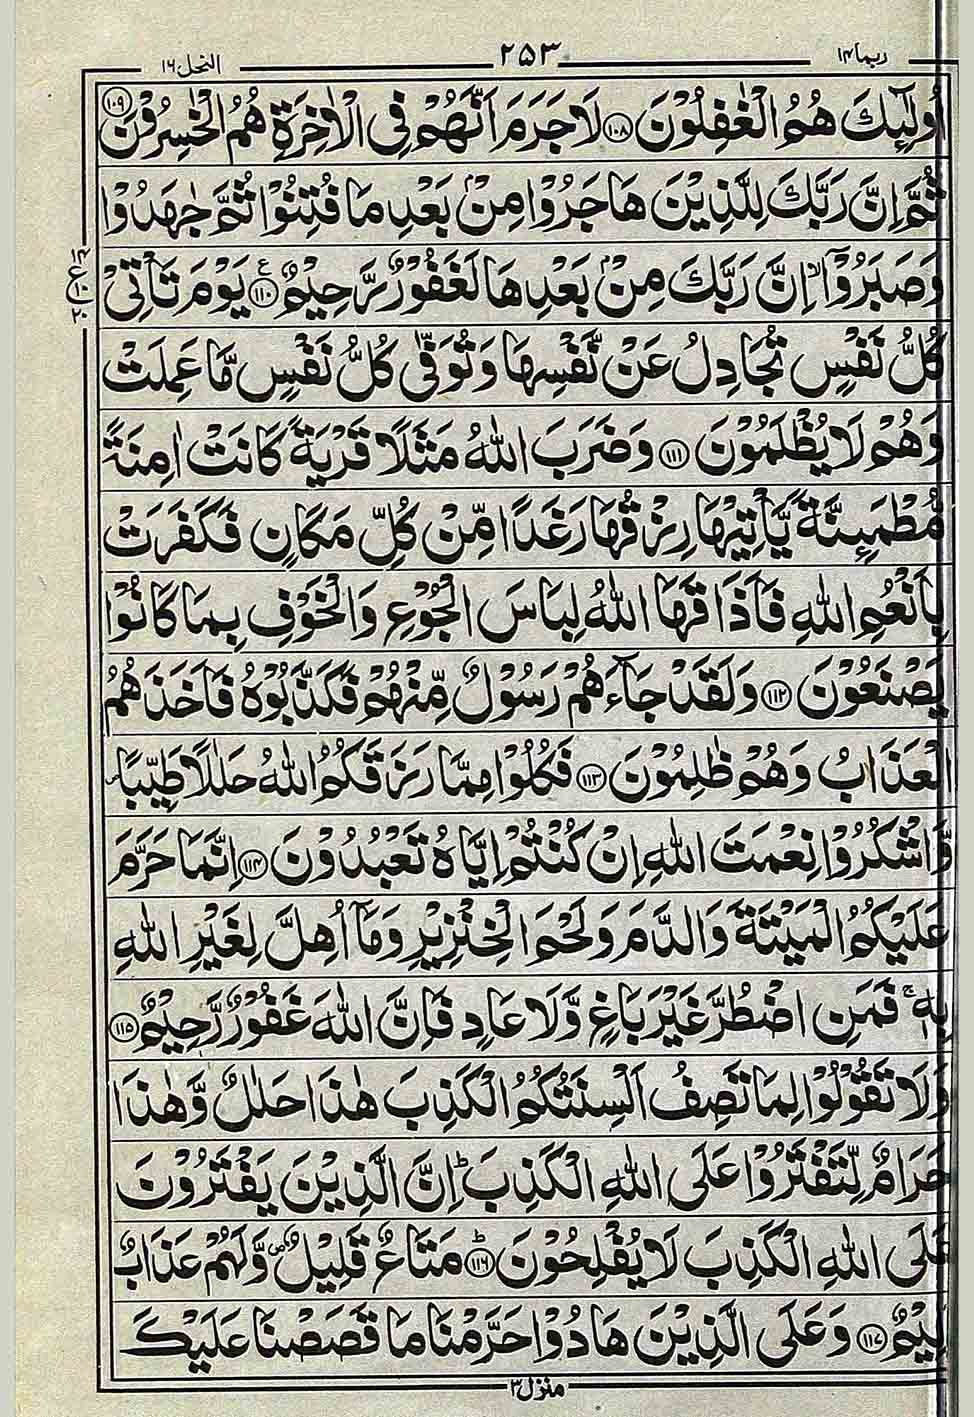 ربما ۱۴
۲۵۳
النحل ۱۶
اُولٰٓئِكَ هُمُ الْغٰفِلُوْنَ ۱۰۸ لَا جَرَمَ اَنَّهُمْ فِى الْاٰخِرَةِ هُمُ الْخٰسِرُوْنَ ۱۰۹
ثُمَّ اِنَّ رَبَّكَ لِلَّذِيْنَ هَاجَرُوْا مِنْۢ بَعْدِ مَا فُتِنُوْا ثُمَّ جٰهَدُوْا
وَصَبَرُوْۤا ۙ اِنَّ رَبَّكَ مِنْۢ بَعْدِهَا لَغَفُوْرٌ رَّحِيْمٌ ۱۱۰ ع يَوْمَ تَاْتِىْ
۱۴
ع
۱۰
۲۰
كُلُّ نَفْسٍ تُجَادِلُ عَنْ نَّفْسِهَا وَتُوَفّٰى كُلُّ نَفْسٍ مَّا عَمِلَتْ
وَهُمْ لَا يُظْلَمُوْنَ ۱۱۱ وَضَرَبَ اللّٰهُ مَثَلًا قَرْيَةً كَانَتْ اٰمِنَةً
مُّطْمَىِٕنَّةً يَّاْتِيْهَا رِزْقُهَا رَغَدًا مِّنْ كُلِّ مَكَانٍ فَكَفَرَتْ
بِاَنْعُمِ اللّٰهِ فَاَذَاقَهَا اللّٰهُ لِبَاسَ الْجُوْعِ وَالْخَوْفِ بِمَا كَانُوْا
يَصْنَعُوْنَ ۱۱۲ وَلَقَدْ جَآءَهُمْ رَسُوْلٌ مِّنْهُمْ فَكَذَّبُوْهُ فَاَخَذَهُمُ
الْعَذَابُ وَهُمْ ظٰلِمُوْنَ ۱۱۳ فَكُلُوْا مِمَّا رَزَقَكُمُ اللّٰهُ حَلٰلًا طَيِّبًا ۖ
وَّاشْكُرُوْا نِعْمَتَ اللّٰهِ اِنْ كُنْتُمْ اِيَّاهُ تَعْبُدُوْنَ ۱۱۴ اِنَّمَا حَرَّمَ
عَلَيْكُمُ الْمَيْتَةَ وَالدَّمَ وَلَحْمَ الْخِنْزِيْرِ وَمَاۤ اُهِلَّ لِغَيْرِ اللّٰهِ
بِهٖ ۚ فَمَنِ اضْطُرَّ غَيْرَ بَاغٍ وَّلَا عَادٍ فَاِنَّ اللّٰهَ غَفُوْرٌ رَّحِيْمٌ ۱۱۵
وَلَا تَقُوْلُوْا لِمَا تَصِفُ اَلْسِنَتُكُمُ الْكَذِبَ هٰذَا حَلٰلٌ وَّهٰذَا
حَرَامٌ لِّتَفْتَرُوْا عَلَى اللّٰهِ الْكَذِبَ ؕ اِنَّ الَّذِيْنَ يَفْتَرُوْنَ
عَلَى اللّٰهِ الْكَذِبَ لَا يُفْلِحُوْنَ ؕ ۱۱۶ مَتَاعٌ قَلِيْلٌ ۖ وَّلَهُمْ عَذَابٌ
اَلِيْمٌ ۱۱۷ وَعَلَى الَّذِيْنَ هَادُوْا حَرَّمْنَا مَا قَصَصْنَا عَلَيْكَ
منزل ۳